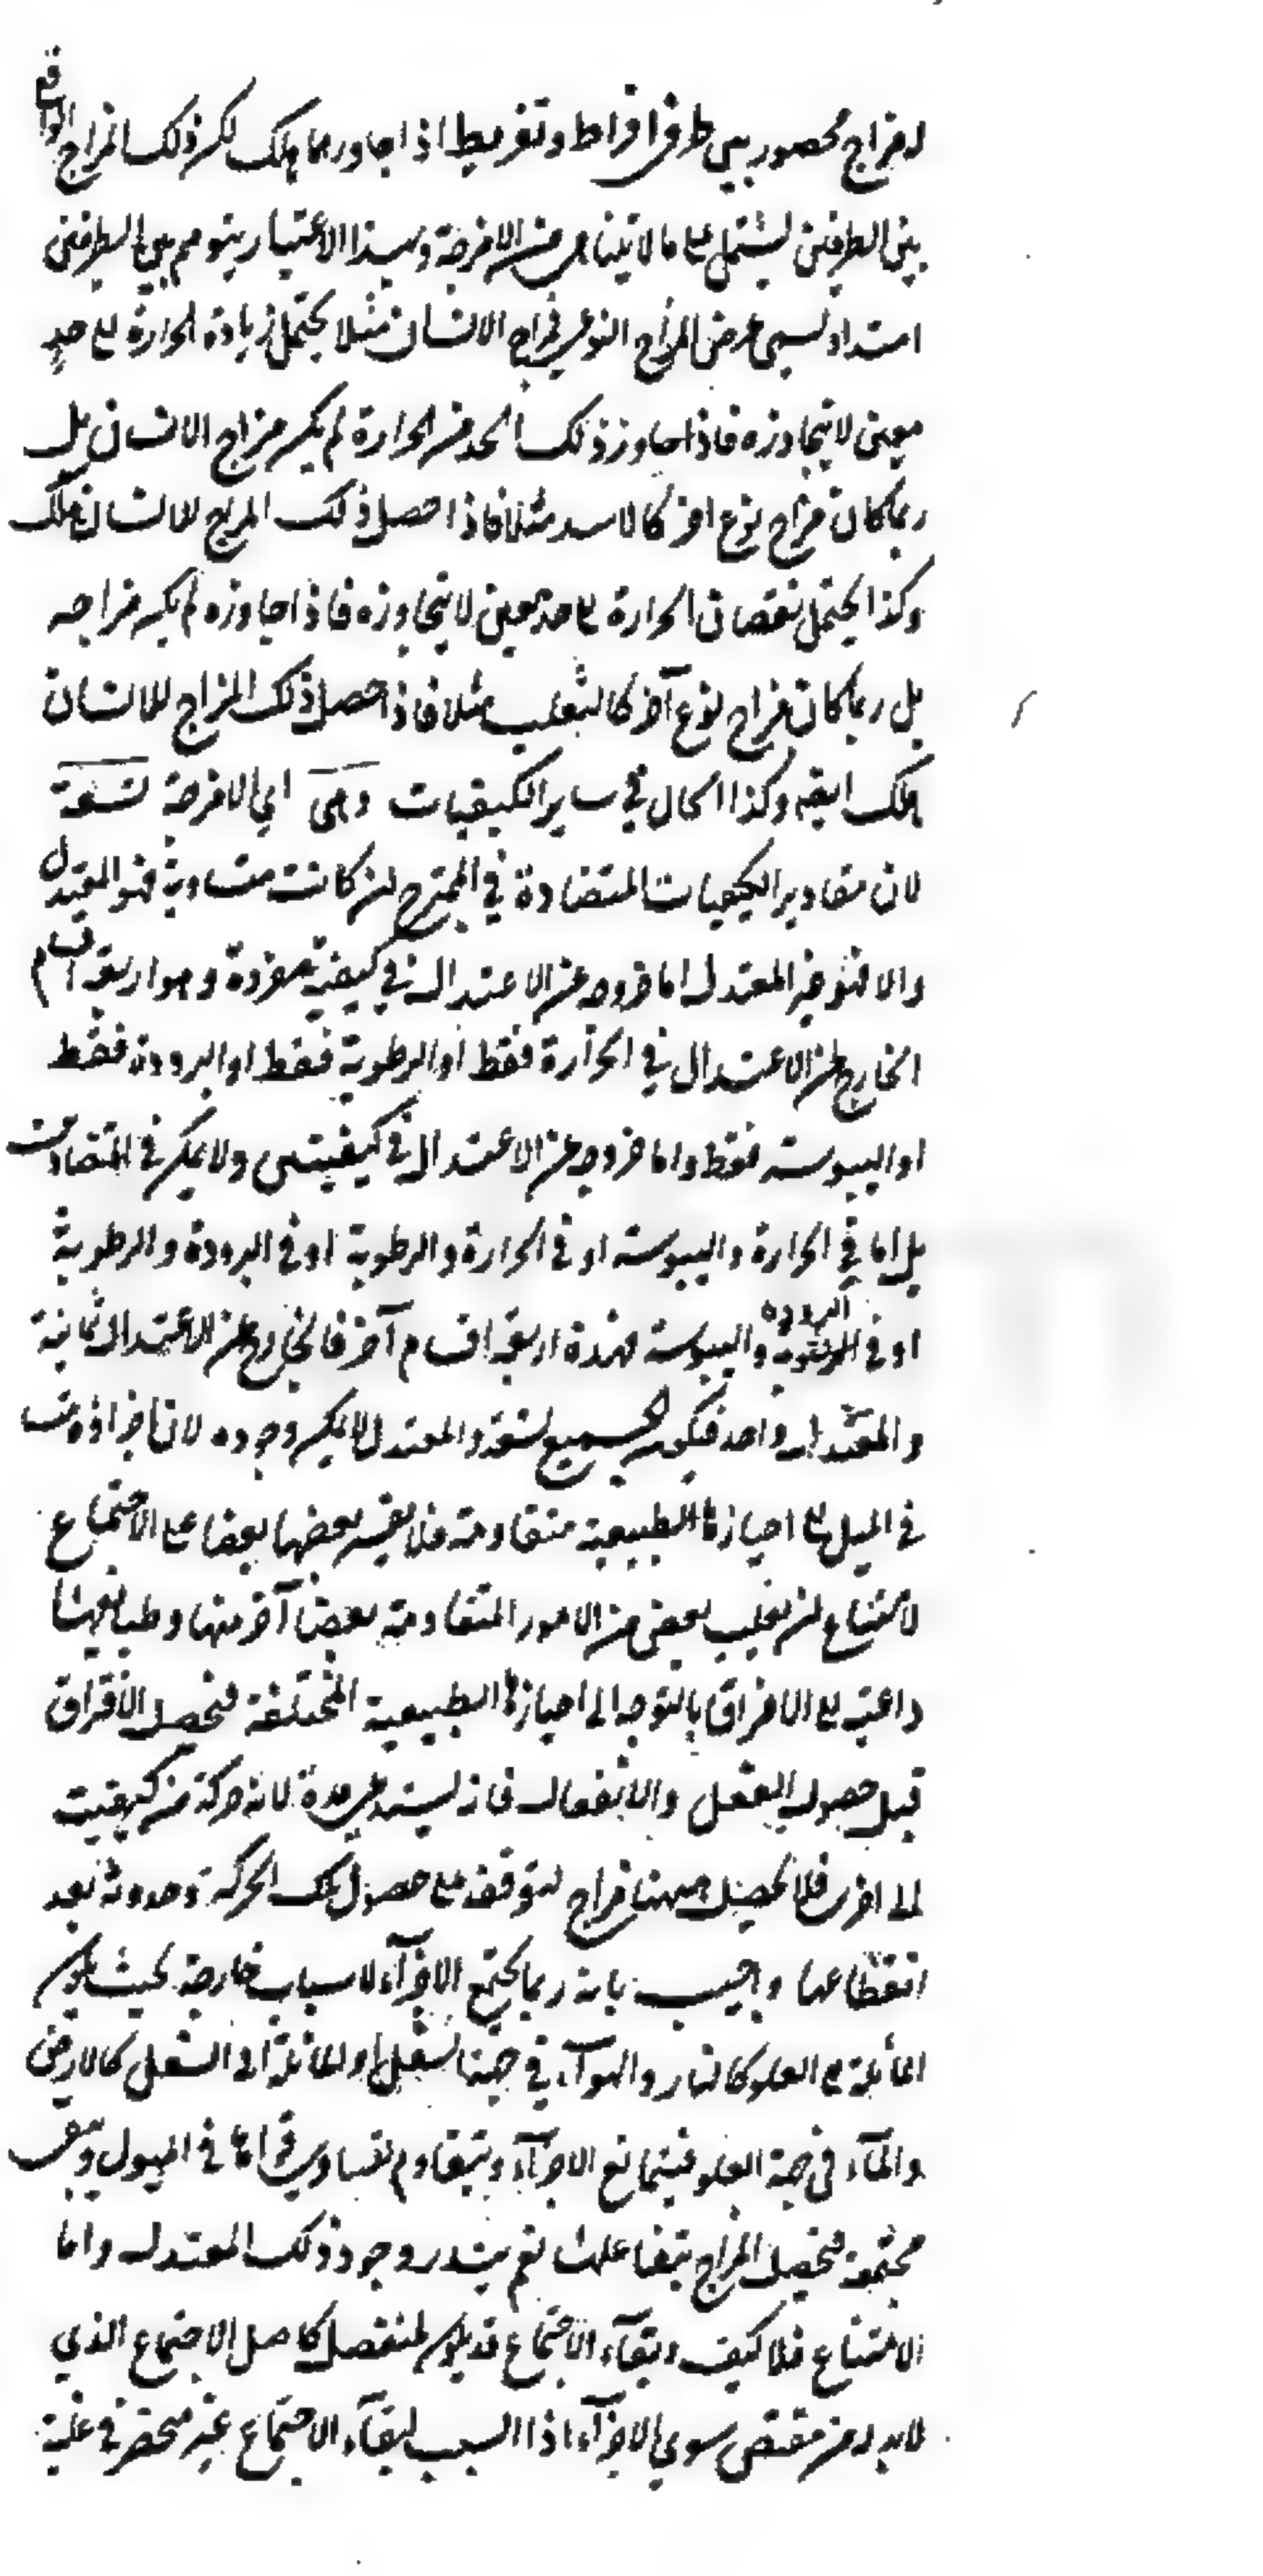 له مزاج محصور بين طرفي افراط وتفريط اذا جاورهما هلك لكن ذلك المزاج الواقع
بين الطرفين يشتمل على ما لا يتناهى من الامزجة وبهذا الاعتبار يتوهم بين الطرفين
امتداد يسمى عرض المزاج النوعي فمزاج الانسان مثلا يحتمل زيادة الحرارة الى حد
معين لا يتجاوزه فاذا جاوز ذلك الحد من الحرارة لم يكن مزاج الانسان بل
ربما كان مزاج نوع اخر كالاسد مثلا فاذا حصل ذلك المزاج للانسان هلك
وكذا يحتمل نقصان الحرارة الى حد معين لا يتجاوزه فاذا جاوزه لم يكن مزاجه
بل ربما كان مزاج نوع آخر كالثعلب مثلا فاذا حصل ذلك المزاج للانسان
هلك ايضه وكذا الحال في ساير الكيفيات وهي اي الامزجة تسعة
لان مقادير الكيفيات المتضادة في الممتزج ان كانت متساوية فهو المعتدل
والا فغير المعتدل اما خروجه عن الاعتدال في كيفية مفردة وهو اربعة اقسام
الخارج عن الاعتدال في الحرارة فقط او الرطوبة فقط او البرودة فقط
او اليبوسة فقط واما خروجه عن الاعتدال في كيفيتين ولا يمكن في المتضادتين
بل اما في الحرارة واليبوسة او في الحرارة والرطوبة او في البرودة والرطوبة
او في البرودة واليبوسة فهذه اربعة اقسام آخر فالخارج عن الاعتدال ثمانية
والمعتدل واحد فيكون الجميع تسعة والمعتدل لا يمكن وجوده لان اجزاؤه
في الميل الى احيازها الطبيعية متقاومة فلا يقسر بعضها بعضا على الاجتماع
لامتناع ان يغلب بعض من الامور المتقاومة بعضا آخر منها وطبايعها
داعية الى الافتراق بالتوجه الى احيازها الطبيعية المختلفة فيحصل الافتراق
قبل حصول الفعل والانفعال فانه يستدعي مدة لانه حركة من كيفية
الى اخرى فلا يحصل منهما مزاج لتوقفه على حصول تلك الحركة وحدوثه بعد
انقطاعها واجيب بانه ربما يجتمع الاجزآء لاسباب خارجة بحيث يكون
المائلة الى العلو كالنار والهوآء في جهة السفل والمائلة الى السفل كالارض
والمآء في جهة العلو فيتمانع الاجزآء ويتقاوم لتساوي قواها في الميول ويبقى
مجتمعة فيحصل المزاج بتفاعلها نعم يندر وجود ذلك المعتدل واما
الامتناع فلا كيف وبقآء الاجتماع قد يكون لمنفصل كاصل الاجتماع الذي
لابد له من مقتض سوى الاجزآء اذا السبب لبقآء الاجتماع غير منحصر في غلبة